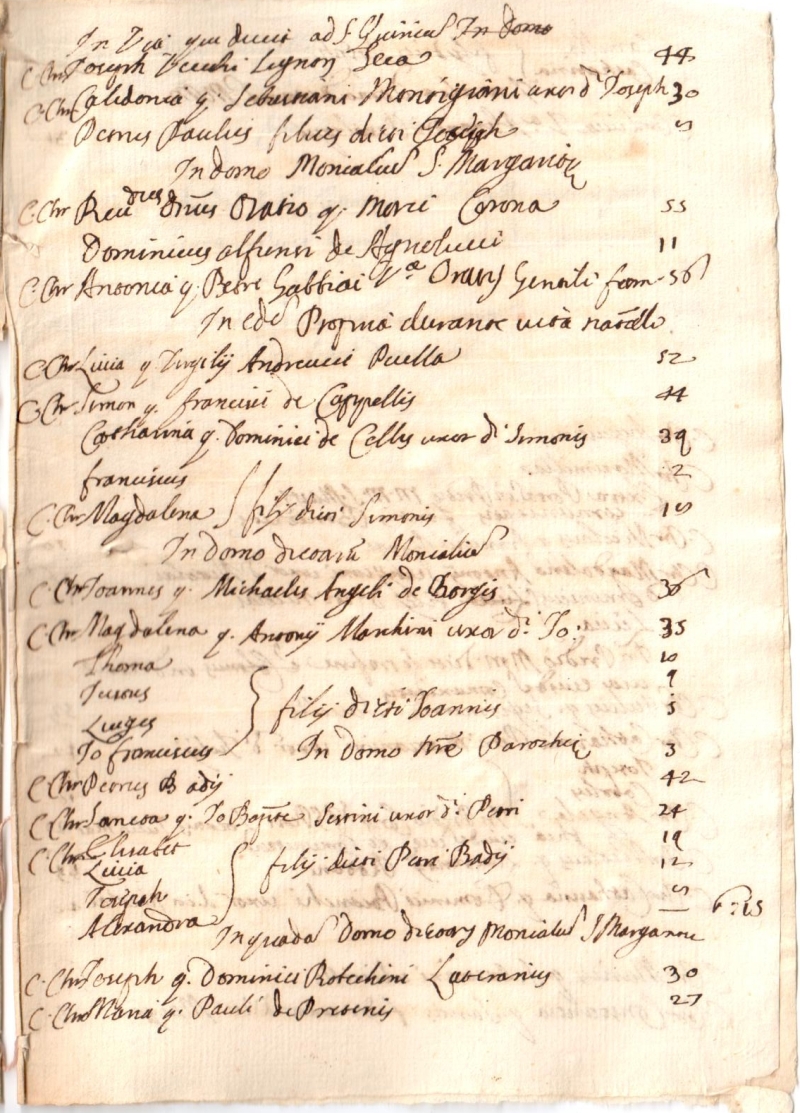 In Via que ducit ad S. Quiricu In Domo
C. Chr Joseph Vecchi Lignon Seca 44
C. Chr Calidonia q. Sebastiani Monsigniani uxor d. Joseph 30
Petrus Paulus filius dicti Joseph 5
In domo Monialiu S. Margarite
C. Chr Reu dnus Oratio q. Marci Corona 55
Dominicus alfunsi de Agnolucci 11
C. Chr Antonia q. Petri Gabbiai Gentili fam 56
In ede Propria durante vita
C. Chr Livia q. Virgilij Andreucci Puella 52
C. Chr Simon q. francisci de Cappellis 44
Catharina q. Dominici de Cellis uxor d. Simonis 39
franciscus 2
C. Chr Magdalena filij dicti Simonis 15
In domo dictaru Monialiu
C. Chr Joannes q. Michaelis Angeli de Borgis 36
C. Chr Magdalena q. Antonij Marchini uxor d. Jo: 35
Thoma 10
9
Luiges filij dicti Joannis 5
Jo franciscus In Domo Parochie 3
C. Chr Petrus Badij 42
C. Chr Santa q. Jo Bapte Sestini uxor d. Petri 24
C. Chr Elisabet 19
Livia filij dicti Petri Badij 12
Joseph 5
Alexandra — 6:15
In quada Domo dictary Monialiu S Margarite
C. Chr Joseph q. Dominici Rotechini Lateranius 30
C. Chr Maria q. Pauli de Presenis 27